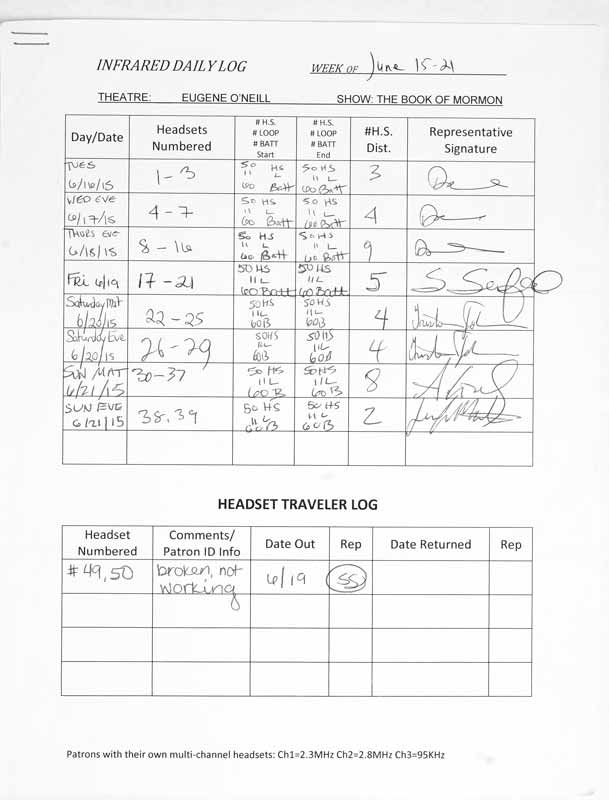 INFRARED DAILY LOG WEEK OF June 15-21
THEATRE: EUGENE O'NEILL SHOW: THE BOOK OF MORMON
Day/Date
Headsets Numbered
# H.S.
# LOOP
# BATT
Start
# H.S.
# LOOP
# BATT
End
#H.S.
Dist.
Representative
Signature
TUES
6/16/15
1-3
50 HS
11 L
60 Batt
50 HS
11 L
60 Batt
3
WED EVE
6/17/15
4-7
50 HS
11 L
60 Batt
50 HS
11 L
60 Batt
4
THURS EVE
6/18/15
8-16
50 HS
11 L
60 Batt
50 HS
11 L
60 Batt
9
FRI 6/19
17-21
50HS
11L
60 Batt
50HS
11L
60 Batt
5
Saturday Mat
6/20/15
22-25
50HS
11L
60B
50HS
11L
60B
4
Saturday Eve
6/20/15
26-29
50HS
11L
60B
50HS
11L
60B
4
SUN MAT
6/21/15
30-37
50 HS
11 L
60 B
50HS
11L
60B
8
SUN EVE
6/21/15
38,39
50 HS
11 L
60B
50 HS
11 L
60B
2
HEADSET TRAVELER LOG
Headset
Numbered
Comments/
Patron ID Info
Date Out
Rep
Date Returned
Rep
#49,50
broken, not
working
6/19
SS
Patrons with their own multi-channel headsets: Ch1=2.3MHz Ch2=2.8MHz Ch3=95KHz